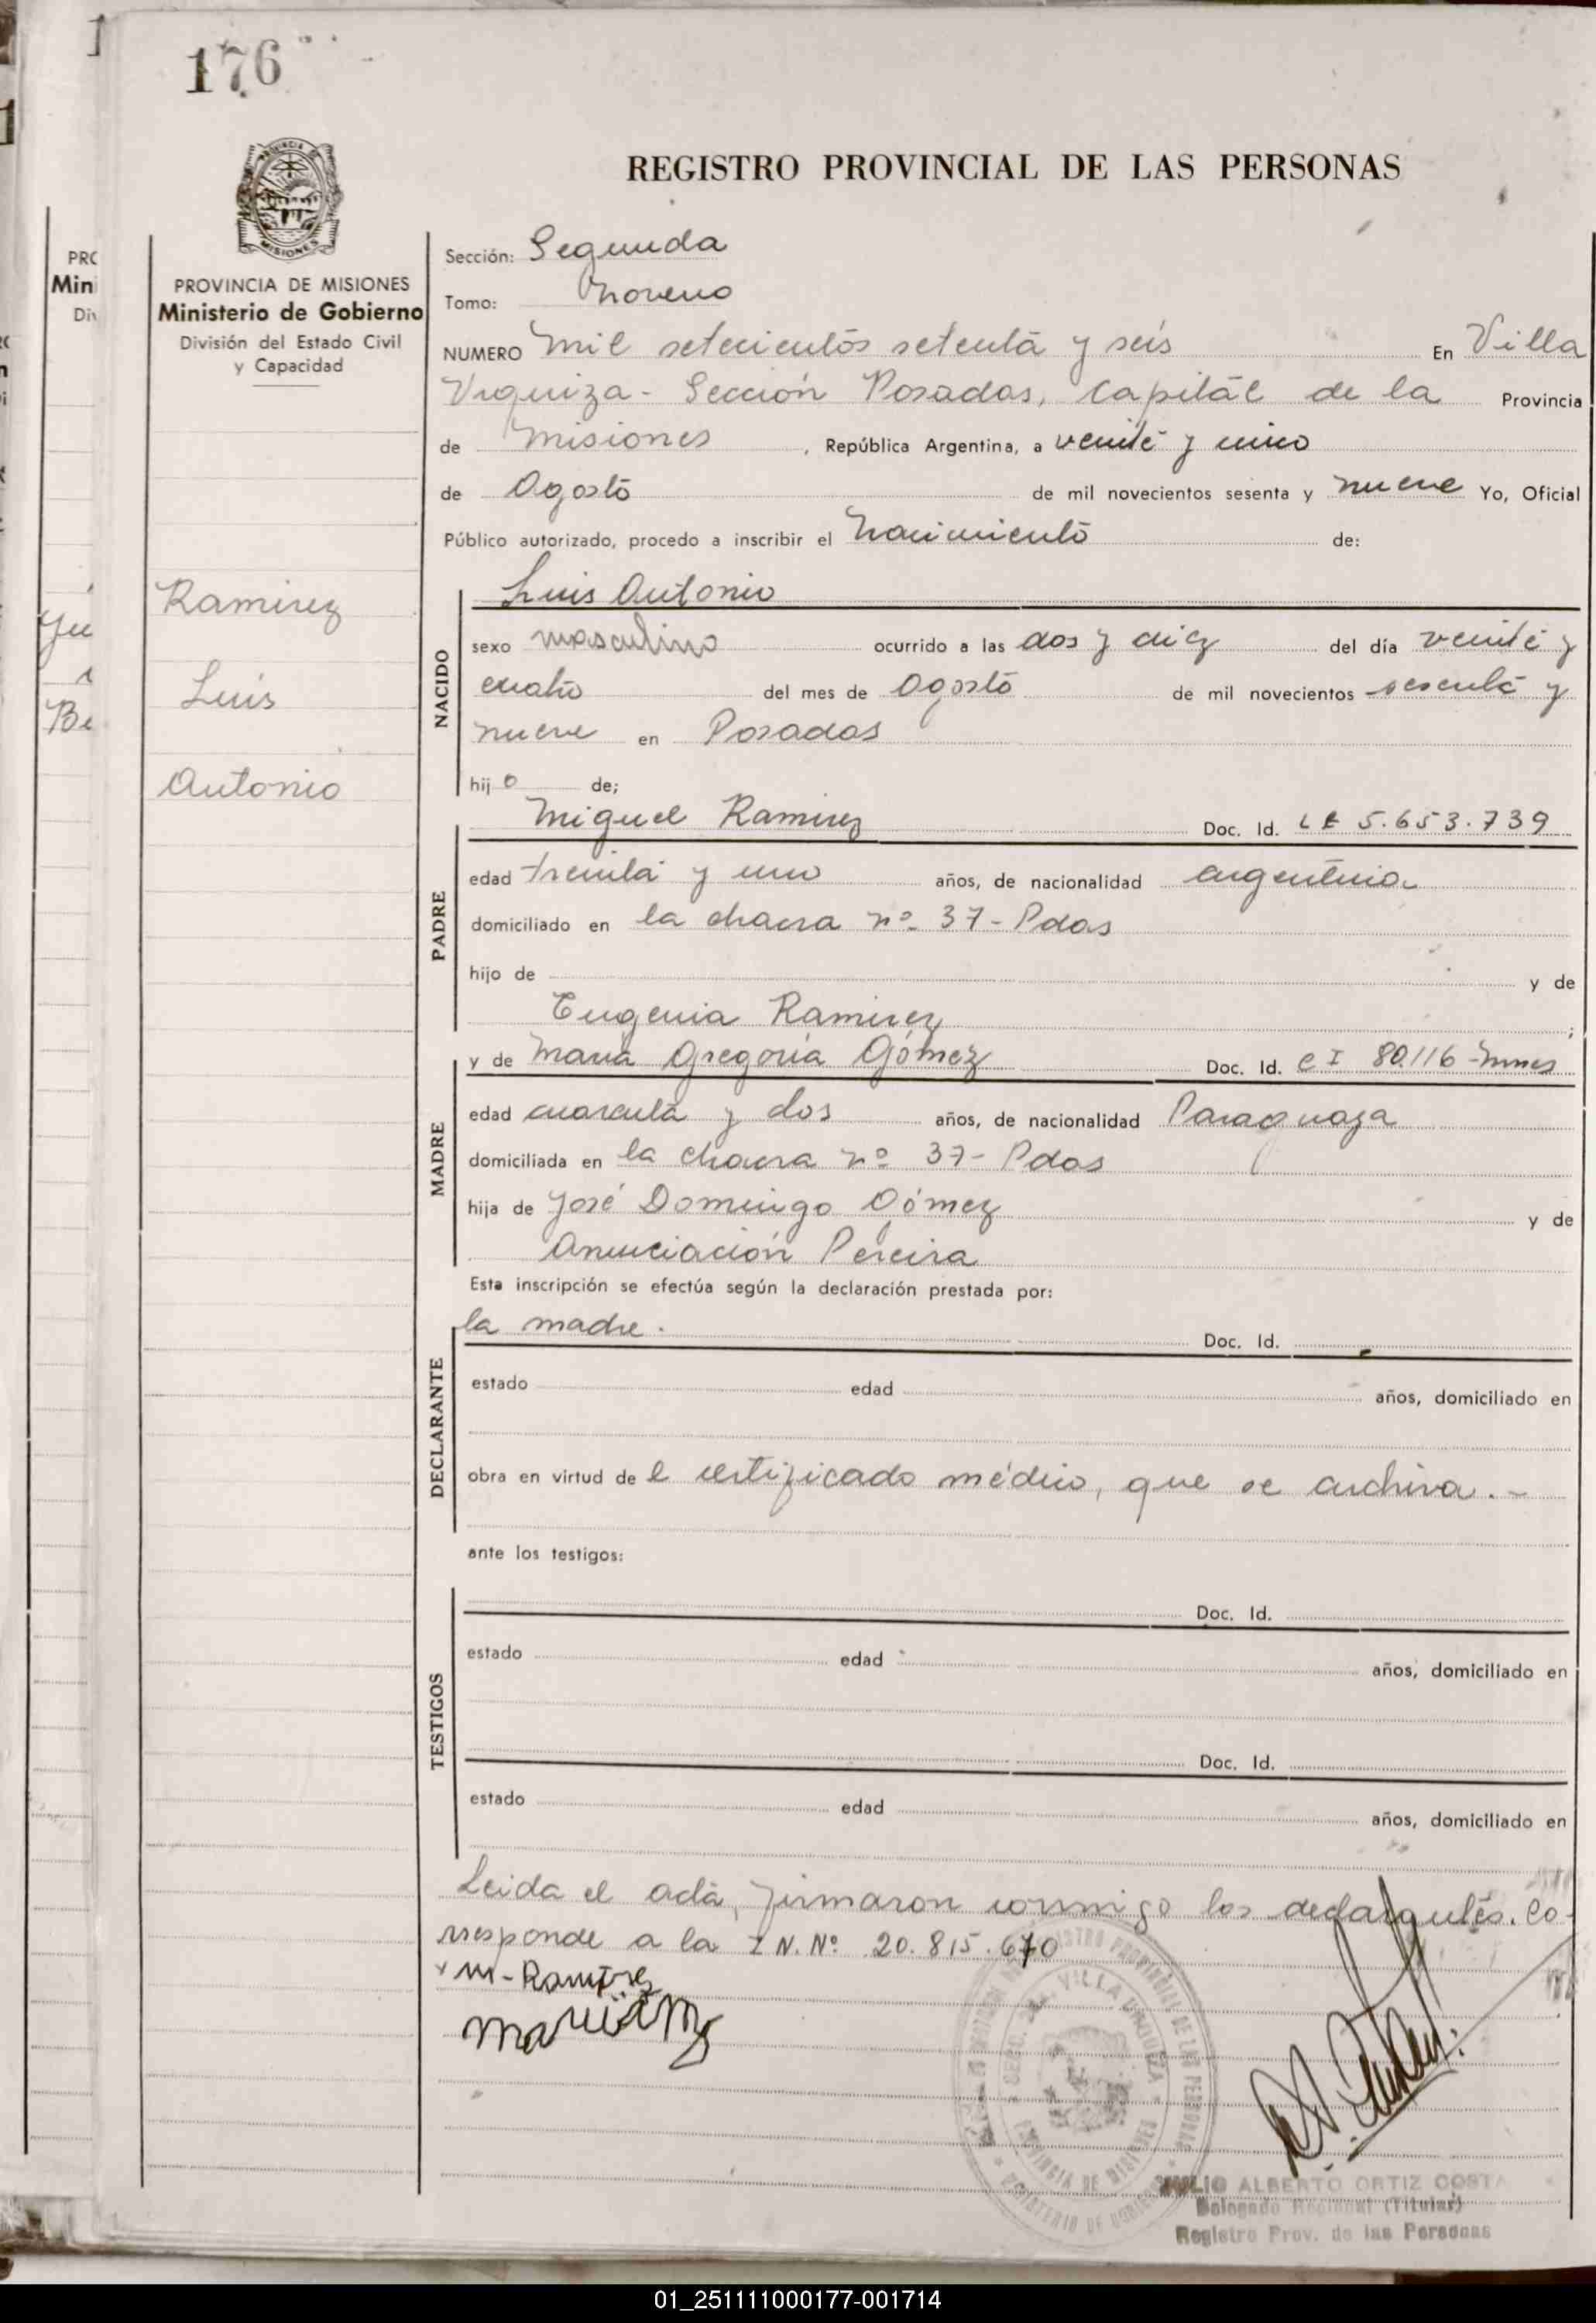 176
REGISTRO PROVINCIAL DE LAS PERSONAS
PROVINCIA DE MISIONES
MISIONES
PROVINCIA DE MISIONES
Ministerio de Gobierno
División del Estado Civil
y Capacidad
Ramirez
Luis
Antonio
Sección: Segunda
Tomo: Noveno
NUMERO Mil setecientos setenta y seis En Villa
Urquiza - Sección Posadas, Capital de la Provincia
de Misiones, República Argentina, a veinte y cinco
de Agosto de mil novecientos sesenta y nueve Yo, Oficial
Público autorizado, procedo a inscribir el nacimiento de:
NACIDO
Luis Antonio
sexo masculino ocurrido a las dos y diez del día veinte y
cuatro del mes de Agosto de mil novecientos sesenta y
nueve en Posadas
hijo de;
PADRE
Miguel Ramirez Doc. Id. LE 5.653.739
edad treinta y uno años, de nacionalidad argentina
domiciliado en la chacra nº 37 - Pdas
hijo de y de
Eugenia Ramirez ;
MADRE
y de Maria Gregoria Gómez Doc. Id. CI 80.116 - Mnes
edad cuarenta y dos años, de nacionalidad Paraguaya
domiciliada en la chacra nº 37 - Pdas
hija de José Domingo Gómez y de
Anunciación Pereira
Esta inscripción se efectúa según la declaración prestada por:
DECLARANTE
la madre. Doc. Id.
estado edad años, domiciliado en
obra en virtud del certificado médico, que se archiva.-
ante los testigos:
TESTIGOS
Doc. Id.
estado edad años, domiciliado en
Doc. Id.
estado edad años, domiciliado en
Leida el acta, firmaron conmigo los declarantes. Co-
rresponde a la I N. Nº 20.815.670
M - Ramirez
VILLA URQUIZA
PROVINCIA DE MISIONES
JULIO ALBERTO ORTIZ COSTA
Delegado Regional (Titular)
Registro Prov. de las Personas
01_251111000177-001714